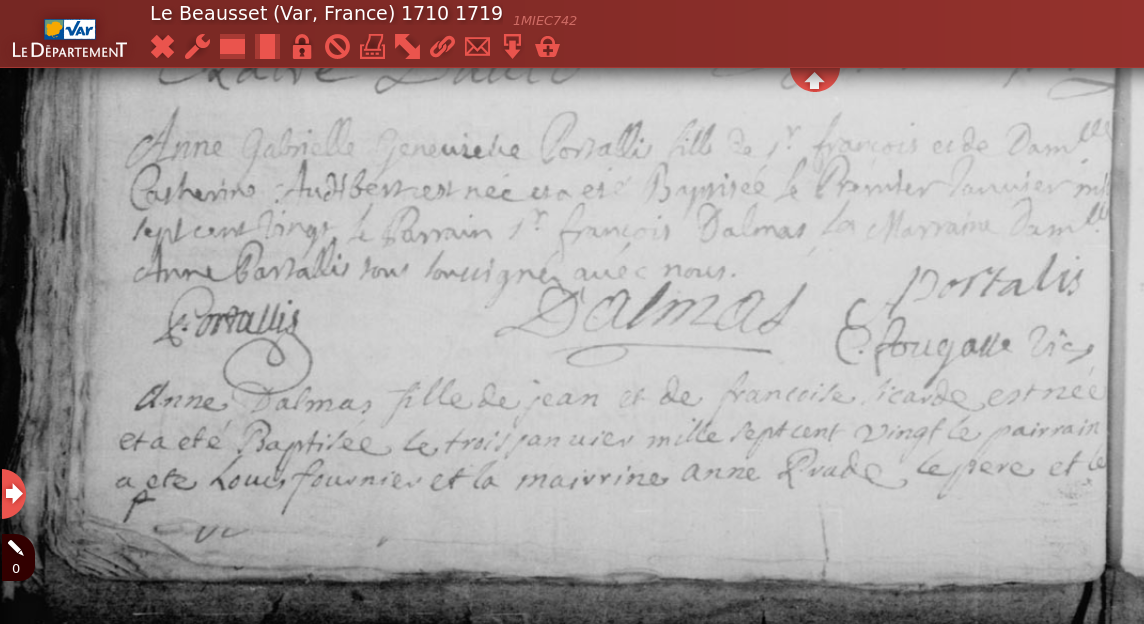 Le Beausset (Var, France) 1710 1719 1MIEC742
VAR
LE DÉPARTEMENT
Anne Gabrielle Genevieve Portallis fille de sr françois et de Damlle
Catherine Audibert est née et a eté Baptisée le Premier Janvier mil
sept cent vingt le Parrain sr françois Dalmas La Marraine Damlle
Anne Portallis sous soussignés avec nous.
Portalis
Portallis
Dalmas
C. fougasse vic
Anne Dalmas fille de jean et de françoise sicarde est née
et a eté Baptisée le trois janvier mille sept cent vingt le pairrain
a ete Louis fournier et la mairrine anne Prade le pere et le
p
0